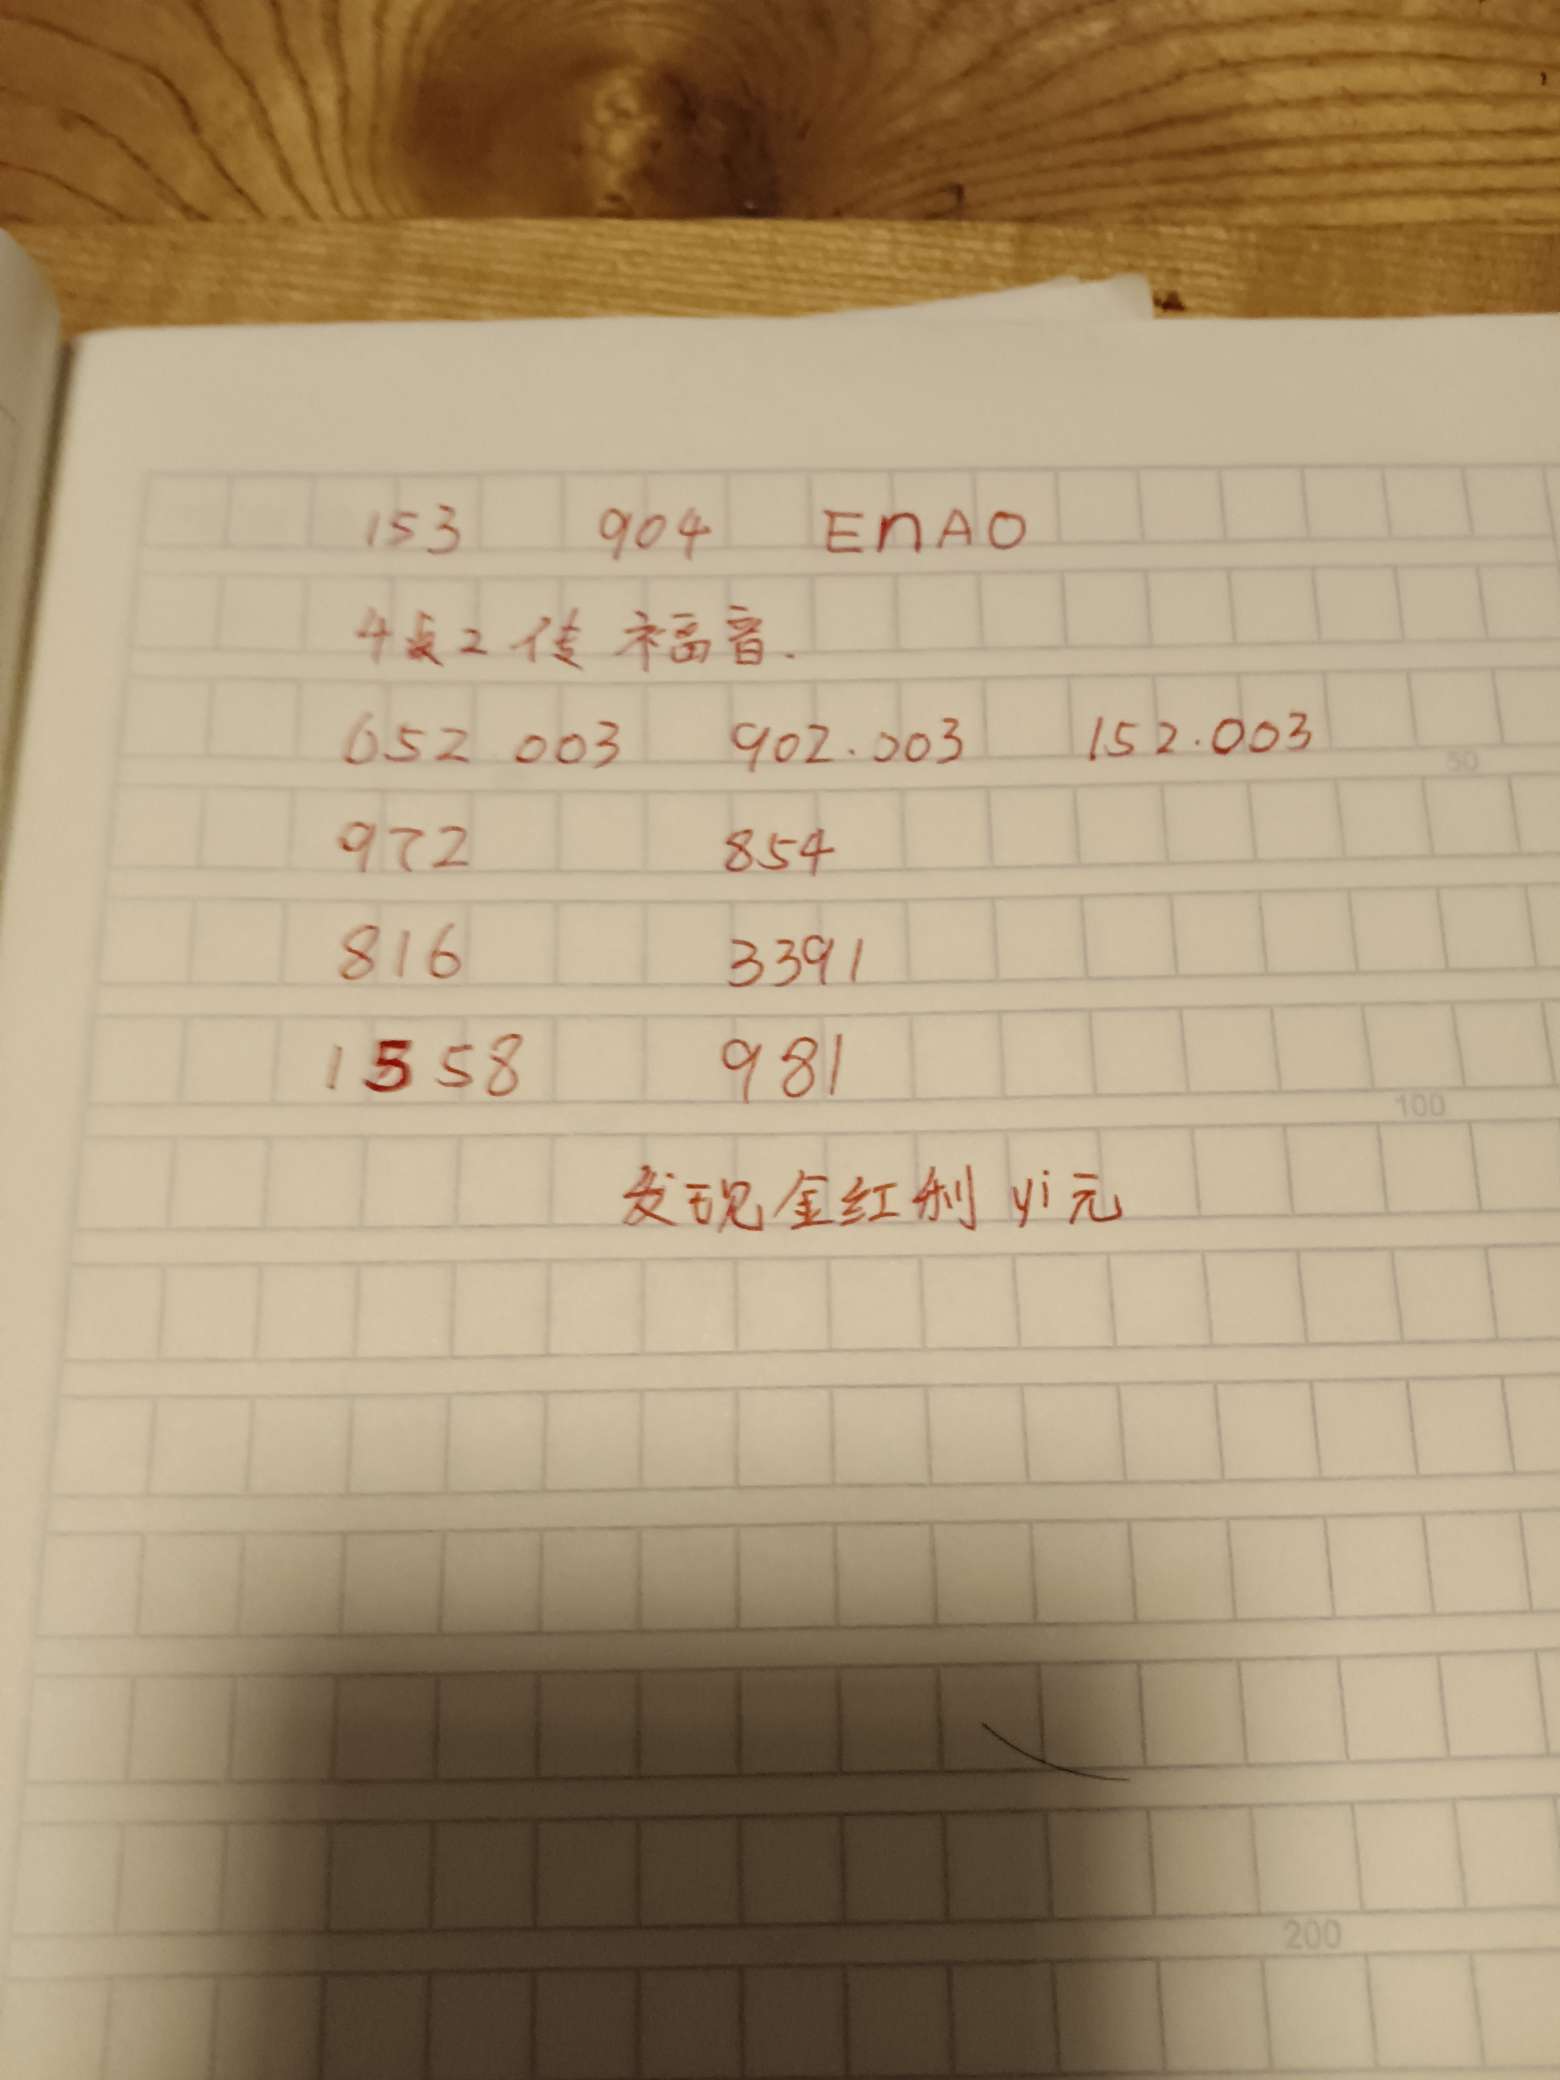 153 904 EnAO
4点2传福音.
652 003 902.003 152.003
50
972 854
816 3391
1558 981
100
发现金红利 yi元
200